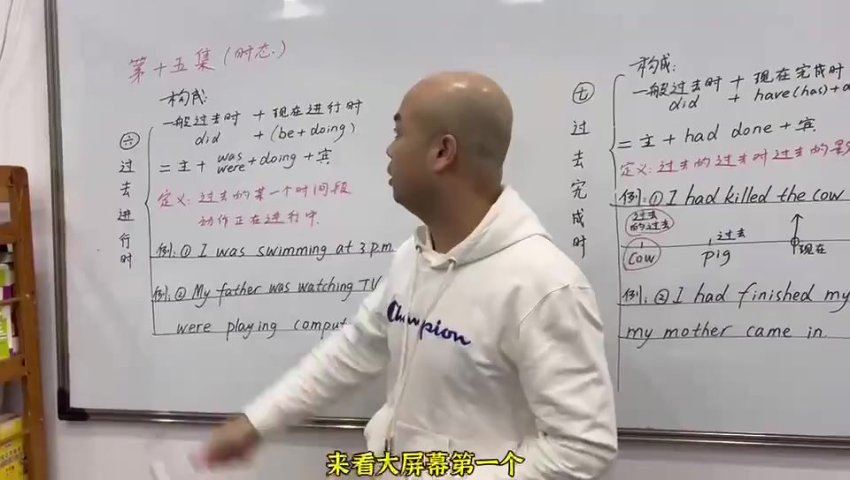 第十五集(时态.)
构成:
一般过去时 + 现在进行时
did + (be+doing)
㈥ 过去进行时
= 主 + was were + doing + 宾.
定义: 过去的某一个时间段
动作正在进行中.
例: ① I was swimming at 3 p.m
例: ② My father was watching TV
were playing comput
㈦ 过去完成时
构成:
一般过去时 + 现在完成时
did + have(has)+d
= 主 + had done + 宾.
定义: 过去的过去对过去的影
例: ① I had killed the cow
过去的过去
过去
现在
cow
pig
例: ② I had finished my
my mother came in
Champion
来看大屏幕第一个